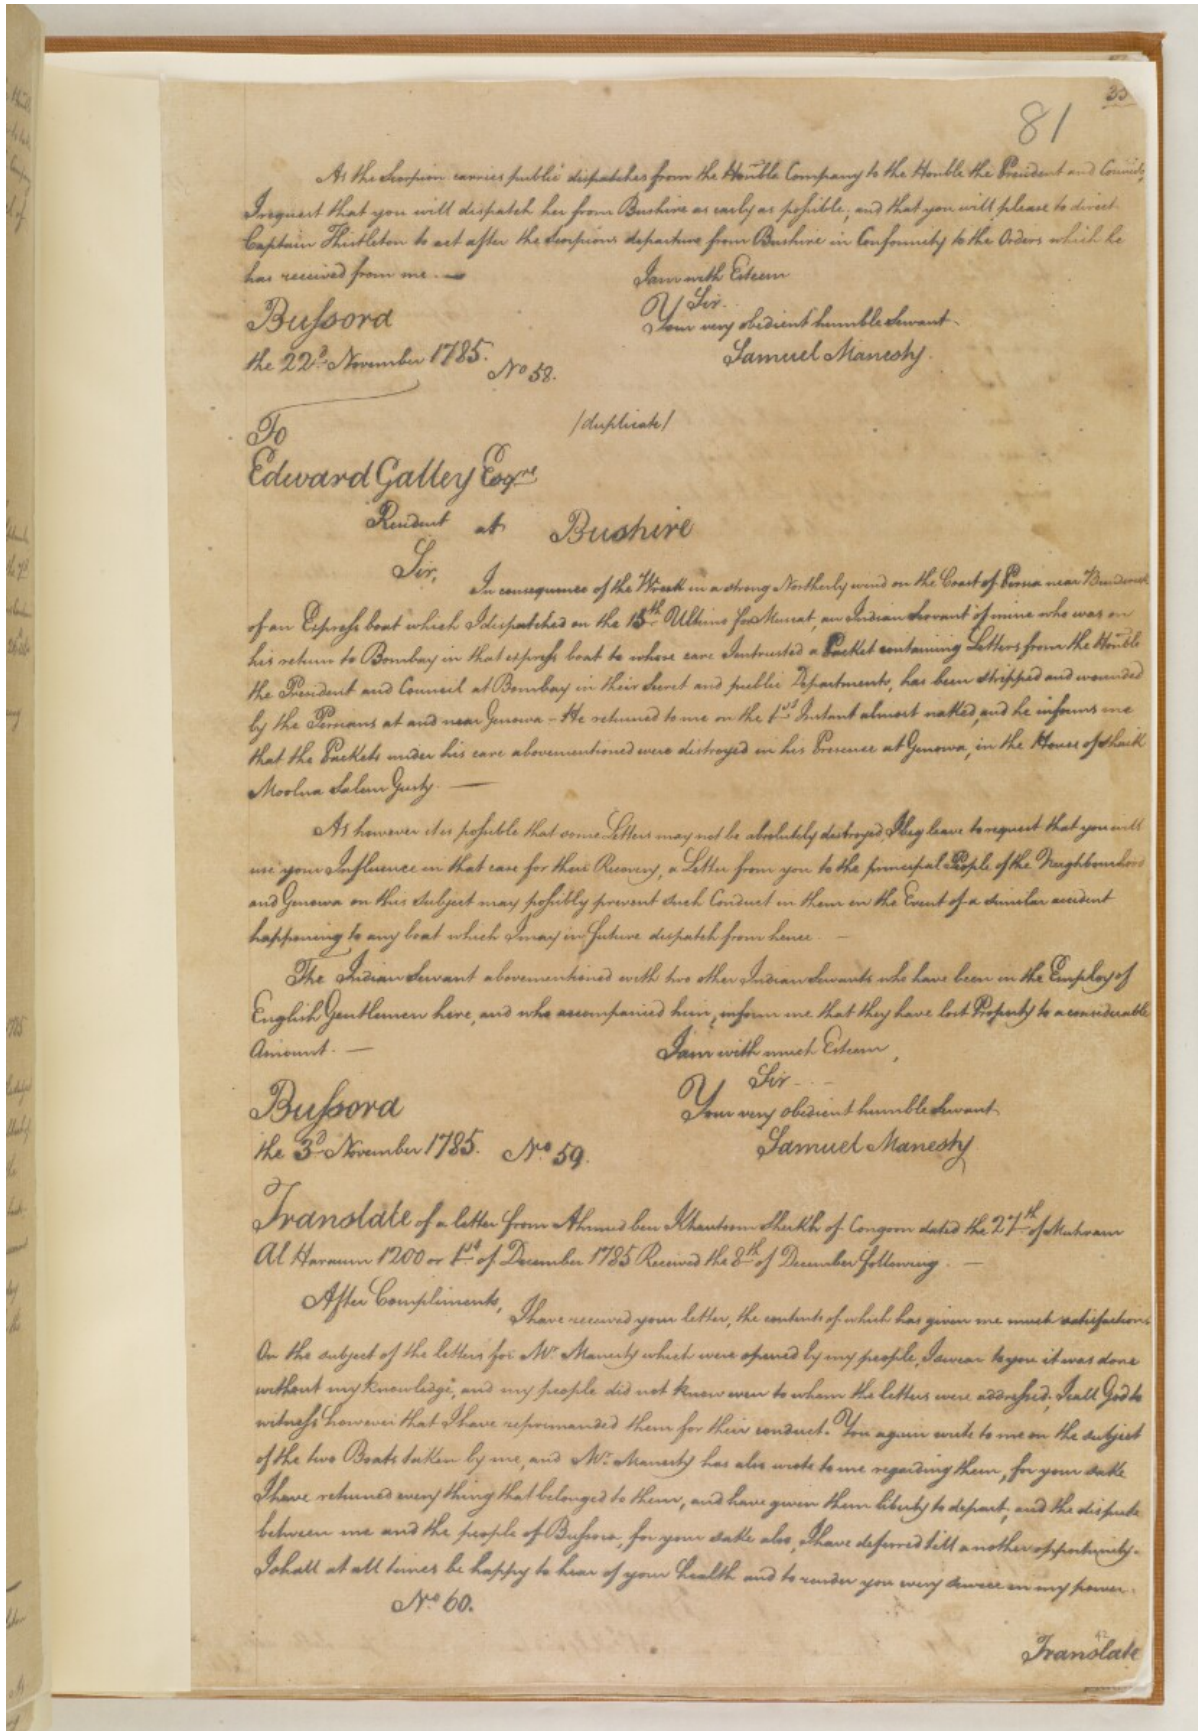 33
81
As the Scorpion carries public dispatches from the Honble Company to the Honble the President and Council,
I request that you will dispatch her from Bushire as early as possible; and that you will please to direct
Captain Thistleton to act after the Scorpions departure from Bushire in Conformity to the Orders which he
has received from me.
I am with Esteem
Sir
Bussora
Your very obedient humble Servant
the 22d November 1785.
Samuel Manesty.
No 58.
To
/duplicate/
Edward Galley Esqre
Resident at Bushire
Sir,
In consequence of the Wreck in a strong Northerly wind on the Coast of Persia near
of an Express boat which I dispatched on the 15th Ultimo for Muscat, an Indian Servant of mine who was on
his return to Bombay in that express boat to whose care I entrusted a Packet containing Letters from the Honble
the President and Council at Bombay in their Secret and public Departments, has been stripped and wounded
by the Persians at and near Genowa - He returned to me on the 1st Instant almost naked, and he informs me
that the Packets under his care abovementioned were distroyed in his Presence at Genowa, in the House of Shaik
Moolna Salem
As however it is possible that some Letters may not be absolutely distroyed, I beg leave to request that you will
use your Influence in that case for their Recovery, a Letter from you to the principal People of the Neighbourhood
and Genowa on this Subject may possibly prevent such Conduct in them on the Event of a similar accident
happening to any boat which I may in future dispatch from hence. —
The Indian Servant abovementioned with two other Indian Servants who have been in the Employ of
English Gentlemen here, and who accompanied him, inform me that they have lost Property to a considerable
Amount. —
I am with much Esteem,
Sir
Bussora
Your very obedient humble Servant
the 3d November 1785. No 59.
Samuel Manesty
Translate of a letter from Ahmed ben Sheikh of Congoon dated the 27th of Muhram
Al Haraum 1200 or 1st of December 1785 Received the 8th of December following. —
After Compliments,
I have received your letter, the contents of which has given me much satisfaction
On the subject of the letters for Mr Manesty which were opened by my people, I swear to you it was done
without my knowledge, and my people did not know even to whom the letters were addressed; I call God to
witness however that I have reprimanded them for their conduct. You again write to me on the subject
of the two Boats taken by me, and Mr Manesty has also wrote to me regarding them, for your sake
I have returned every thing that belonged to them, and have given them liberty to depart; and the dispute
between me and the people of Bussora, for your sake also, I have deferred till another opportunity.
I shall at all times be happy to hear of your health and to render you every service in my power.
No 60.
42
Translate